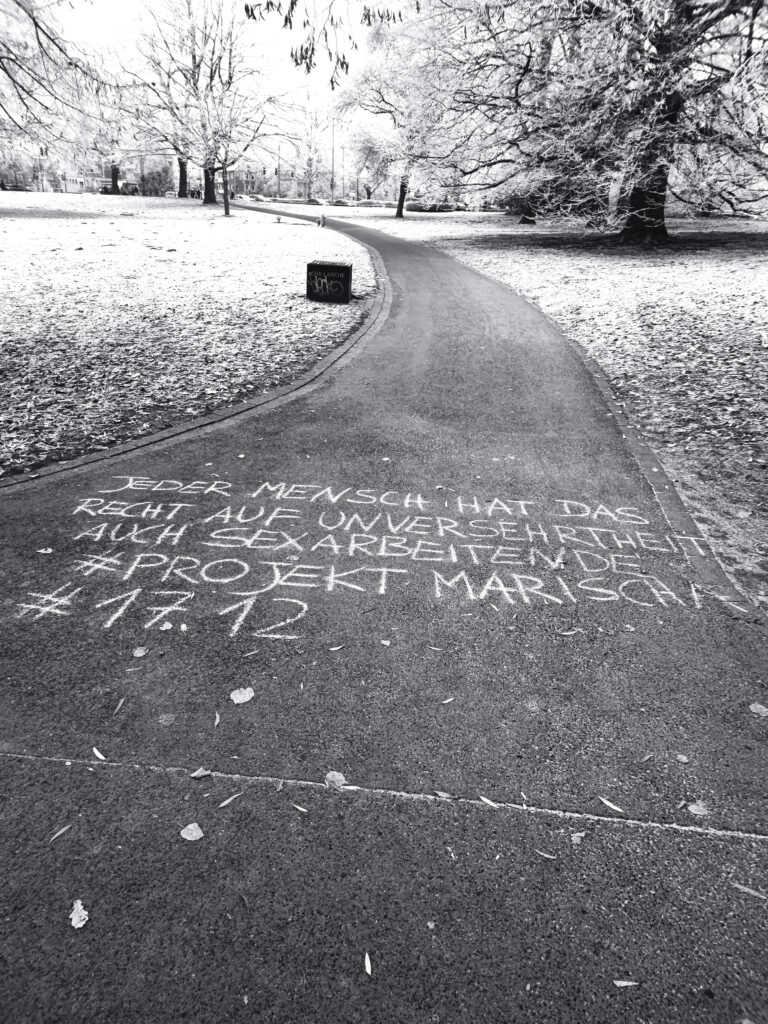 JEDER MENSCH HAT DAS
RECHT AUF UNVERSEHRTHEIT
AUCH SEXARBEITENDE
#PROJEKT MARISCHKA
#17.12